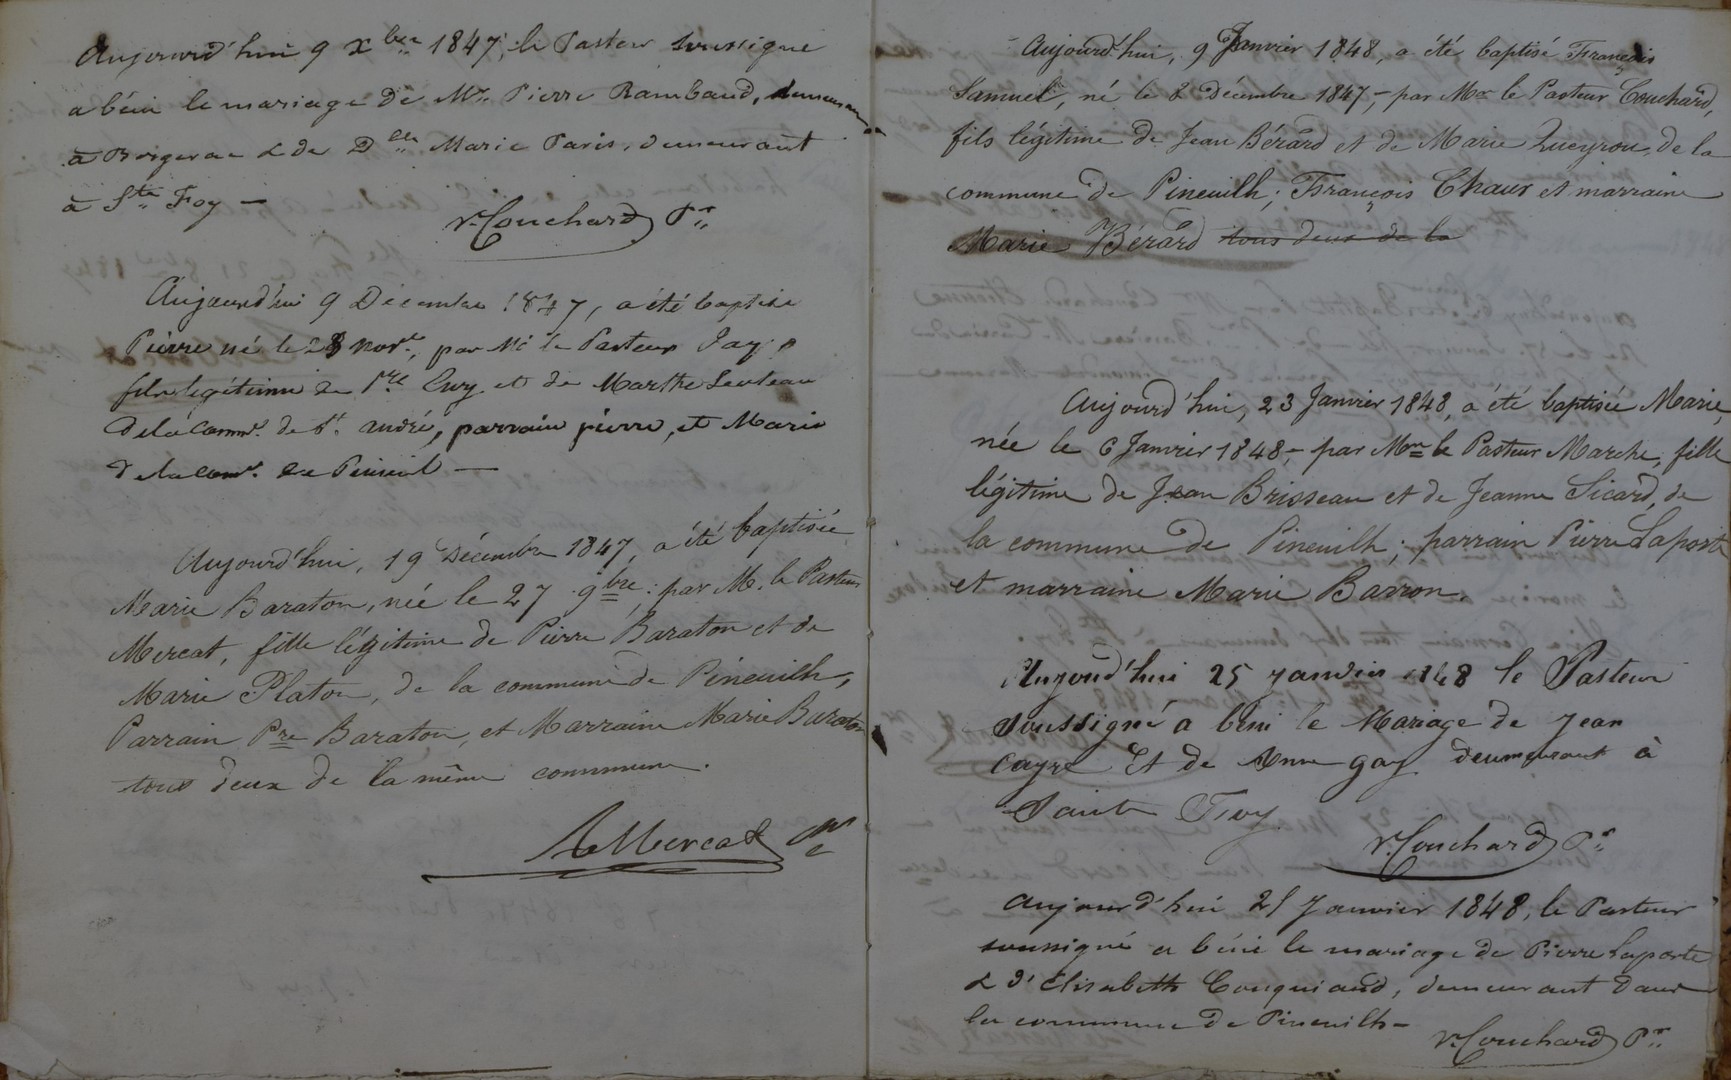 Aujourd'hui 9 Xbre 1847, le Pasteur soussigné
a béni le mariage de Mr. Pierre Rambaud, demeurant
à Bergerac & de Dlle Marie Paris, demeurant
à Ste Foy —
Vr. Couchard Pr
Aujourd'hui 9 Décembre 1847, a été baptisé
Pierre né le 28 Novre, par Mr le Pasteur Jay,
fils légitime de Pre Eury et de Marthe
de la Comme. de St. André, parrain pierre, et Marie
de la Com. de Pineuil —
Aujourd'hui, 19 Décembre 1847, a été baptisée
Marie Baraton, née le 27 9bre: par M. le Pasteur
Mercat, fille légitime de Pierre Baraton et de
Marie Platon, de la commune de Pineuilh,
Parrain Pre Baraton, et Marraine Marie Baraton
tous deux de la même commune.
A Mercat Pr
Aujourd'hui, 9 Janvier 1848, a été baptisé François
Samuel, né le 8 Décembre 1847, — par Mr le Pasteur Couchard,
fils légitime de Jean Bérard et de Marie Queyrou, de la
commune de Pineuilh; François Chaux et marraine
Marie Bérard tous deux de la
Aujourd'hui, 23 Janvier 1848, a été baptisée Marie,
née le 6 Janvier 1848, — par Mr le Pasteur Marche, fille
légitime de Jean Brisseau et de Jeanne Sicard, de
la commune de Pineuilh; parrain Pierre Laporte
et marraine Marie Barron.
Aujourd'hui 25 Janvier 1848 le Pasteur
Soussigné a béni le Mariage de Jean
Cayre Et de Anne gay deumeurant à
Saint Foy
Vr. Couchard Pr
Aujourd'hui 25 Janvier 1848, le Pasteur
soussigné a béni le mariage de Pierre Laporte
& d'Elisabeth Couquiaud, demeurant dans
la commune de Pineuilh —
Vr. Couchard Pr